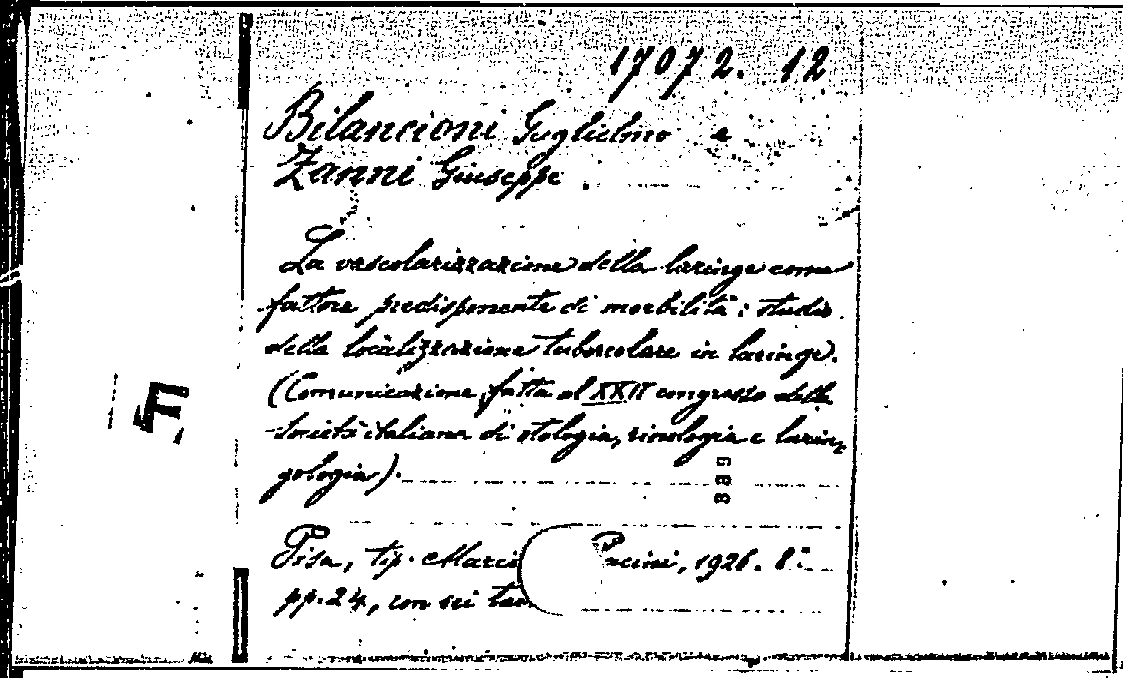 17072. 12
Bilancioni Guglielmo e
Zanni Giuseppe.
La vascolarizzazione della laringe come
fattore predisponente di morbilità: studio
della localizzazione tubercolare in laringe.
(Comunicazione fatta al XXII congresso della
Società italiana di otologia, rinologia e larin,
gologia).
F,
889
Pisa, tip. Marci Pacini, 1926. 8°.
pp. 24, con sei tav.